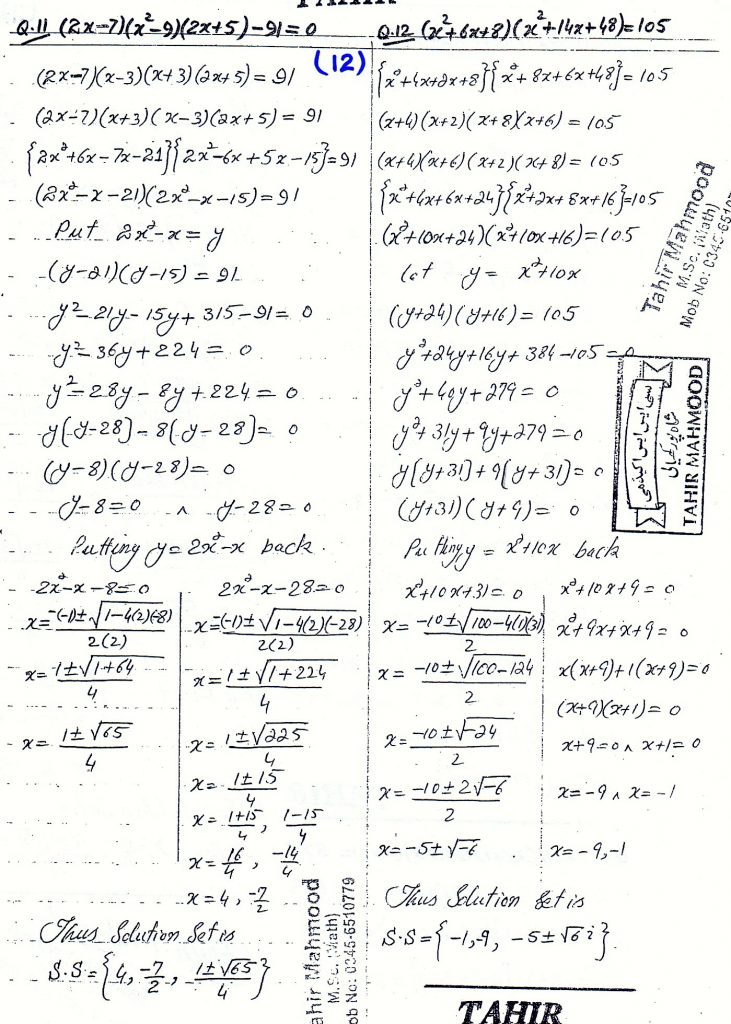 TAHIR
Q.11 (2x-7)(x²-9)(2x+5)-91=0
(12)
(2x-7)(x-3)(x+3)(2x+5)=91
(2x-7)(x+3)(x-3)(2x+5)=91
{2x²+6x-7x-21}{2x²-6x+5x-15}=91
(2x²-x-21)(2x²-x-15)=91
Put 2x²-x=y
(y-21)(y-15)=91
y²-21y-15y+315-91=0
y²-36y+224=0
y²-28y-8y+224=0
y[y-28]-8[y-28]=0
(y-8)(y-28)=0
y-8=0 ∧ y-28=0
Putting y=2x²-x back.
2x²-x-8=0
x=-(-1)±√1-4(2)(-8)/2(2)
x=1±√1+64/4
x=1±√65/4
2x²-x-28=0
x=-(-1)±√1-4(2)(-28)/2(2)
x=1±√1+224/4
x=1±√225/4
x=1±15/4
x=1+15/4, 1-15/4
x=16/4, -14/4
x=4, -7/2
Thus Solution Set is
S.S={4, -7/2, 1±√65/4}
Q.12 (x²+6x+8)(x²+14x+48)=105
{x²+4x+2x+8}{x²+8x+6x+48}=105
(x+4)(x+2)(x+8)(x+6)=105
(x+4)(x+6)(x+2)(x+8)=105
{x²+4x+6x+24}{x²+2x+8x+16}=105
(x²+10x+24)(x²+10x+16)=105
let y=x²+10x
(y+24)(y+16)=105
y²+24y+16y+384-105=0
y²+40y+279=0
y²+31y+9y+279=0
y[y+31]+9[y+31]=0
(y+31)(y+9)=0
Putting y=x²+10x back
x²+10x+31=0
x=-10±√100-4(1)(31)/2
x=-10±√100-124/2
x=-10±√-24/2
x=-10±2√-6/2
x=-5±√-6
x²+10x+9=0
x²+9x+x+9=0
x(x+9)+1(x+9)=0
(x+9)(x+1)=0
x+9=0 ∧ x+1=0
x=-9 ∧ x=-1
x=-9,-1
Thus Solution Set is
S.S={-1,-9, -5±√6i}
Tahir Mahmood
M.Sc. (Math)
Mob No: 0345-6510
TAHIR MAHMOOD
ahir Mahmood
M.Sc. (Math)
ob No: 0345-6510779
TAHIR